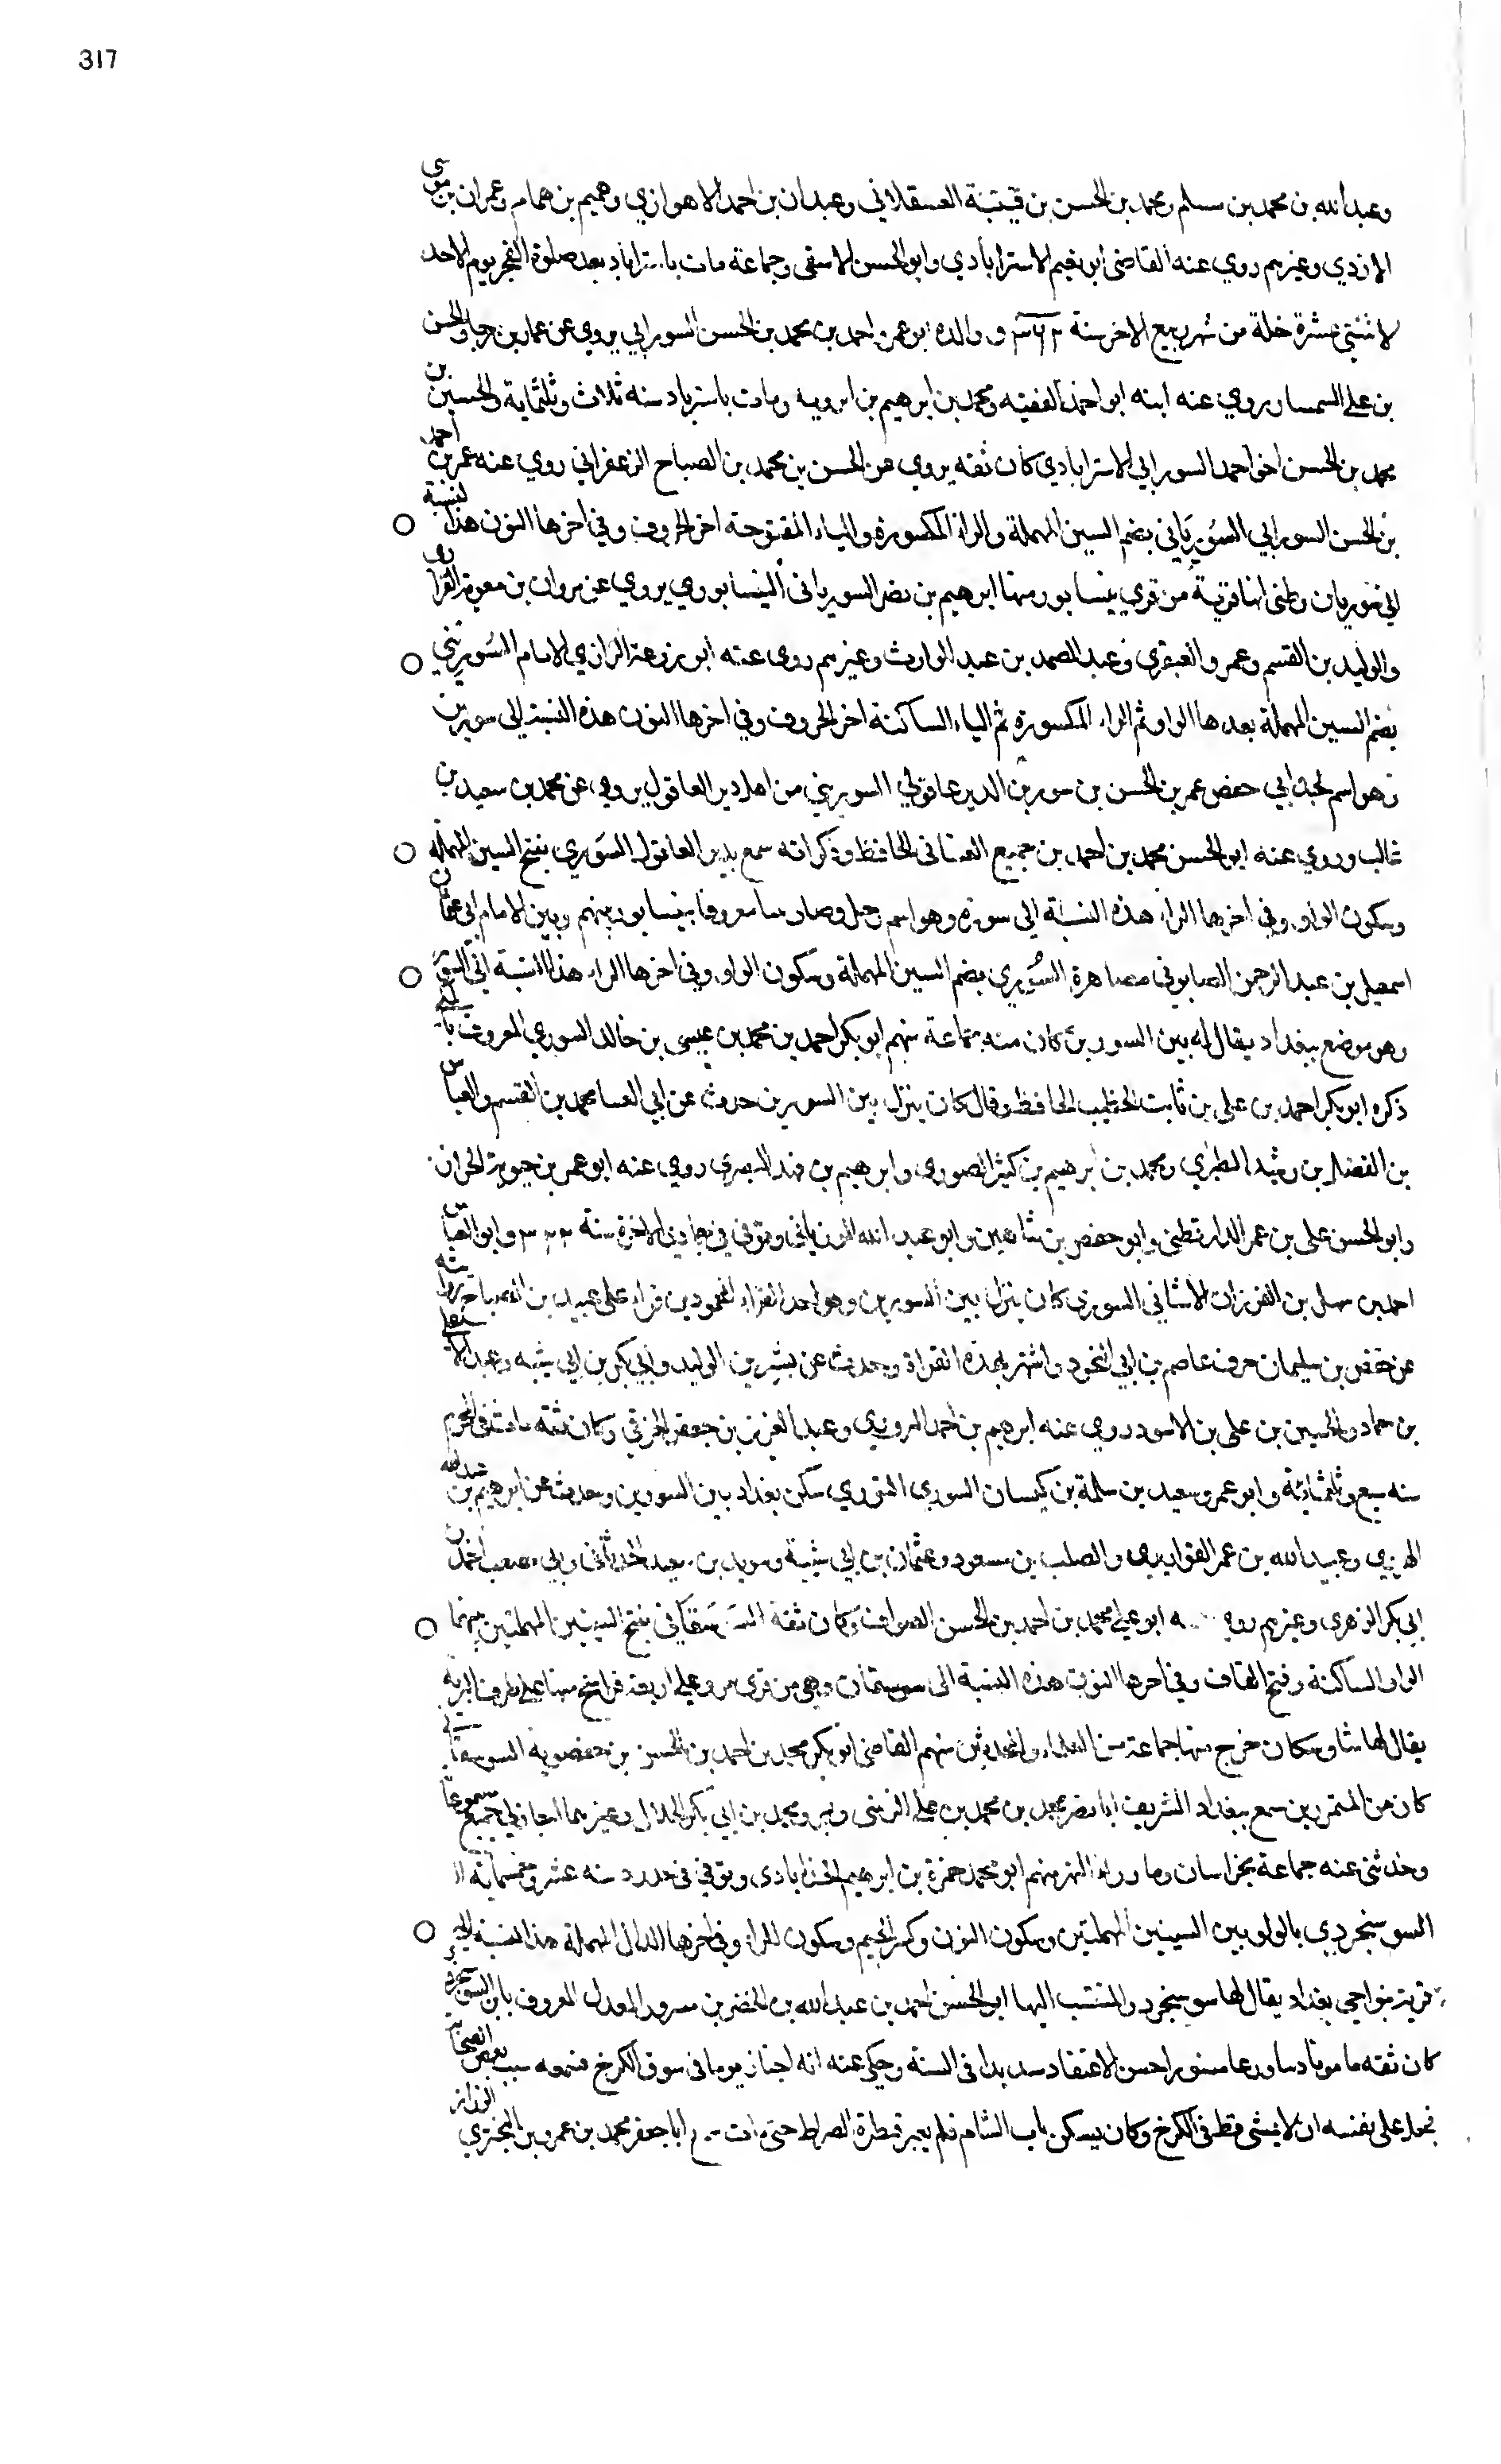 317
وعبد الله بن محمد بن سلم ومحمد بن الحسن بن قتيبة العسقلاني وعبدان بن احمد الاهوازي وهميم بن همام وعمران بن موسى
الازدي وغيرهم روي عنه القاضي ابو نعيم الاسترابادي وابو الحسن الاسقى وجماعة مات باستراباد بعد صلوة الفجر يوم الاحد
لاثنتي عشرة خلة من شهر ربيع الاخر سنة ٣٦٢ و والده ابو عمرو احمد بن محمد بن الحسن السورابي يروي عن عمار بن رجا والحسن
بن علي السمسار روي عنه ابنه ابو احمد الفقيه ومحمد بن ابرهيم بن ابرويه ومات باسترباد سنه ثلاث وثلثماية والحسين بن
محمد بن الحسن اخو احمد السورابي الاسترابادي كان ثقه يروي عن الحسن بن محمد بن الصباح الزعفراني روي عنه عمر بن احمد
بن الحسن السورابي السورياني بضم السين المهملة والراء المكسورة والياء المفتوحة اخر الحروف وفي اخرها النون هذه النسبة
الي سوريان وظني انها قرية من قري نيسابور منها ابرهيم بن نصر السورياني النيسابوري يروي عن مروان بن معوية الفزاري
والوليد بن القسم وعمرو العبقري وعبد الصمد بن عبد الوارث وغيرهم روي عنه ابو زرعة الرازي الامام السوريني
بضم السين المهملة بعدها الواو ثم الراء المكسورة ثم الياء الساكنة اخر الحروف وفي اخرها النون هذه النسبة الي سورين
وهو اسم لجد ابي حفص عمر بن الحسن بن سورين الدير عاقولي السوريني من اهل دير العاقول يروي عن محمد بن سعيد بن
غالب وروي عنه ابو الحسن محمد بن احمد بن جميع الغساني الحافظ وذكر انه سمع بدير العاقول السوري بفتح السين المهملة
وسكون الواو وفي اخرها الراء هذه النسبة الي سورة وهو اسم رجل وصار بيتا معروفا بنيسابور بينهم وبين الامام ابي عثمان
اسمعيل بن عبد الرحمن الصابوني مصاهرة السوري بضم السين المهملة وسكون الواو وفي اخرها الراء هذا النسبة الي
وهو موضع ببغداد يقال له بين السورين كان منه جماعة منهم ابو بكر احمد بن محمد بن عيسى بن خالد السوري المعروف
ذكره ابو بكر احمد بن علي بن ثابت الخطيب الحافظ وقال كان ينزل بين السورين حدث عن ابي العينا محمد بن القسم والعباس
بن الفضل بن رشيد الطبري ومحمد بن ابرهيم بن كثير الصوري وابرهيم بن فهد البصري روي عنه ابو عمر بن حيوية الخزاز
وابو الحسن علي بن عمر الدارقطني وابو حفص بن شاهين وابو عبد الله المرزباني وتوفي في جمادي الاخرة سنة ٣٢٢ وابو العباس
احمد بن سهل بن الفيرزان الاشناني السوري كان ينزل بين السورين وهو احد القراء المجودين قراء علي عبيد بن الصباح
عن حفص بن سليمان حرف عاصم بن ابي النجود واشتهر بهذه القراة وحدث عن بشر بن الوليد وابي بكر بن ابي شيبه وعبد الاعلى
بن حماد والحسين بن علي بن الاسود روي عنه ابرهيم بن احمد المروزي وعبد العزيز بن جعفر الخرقي وكان ثقة مات في المحرم
سنه سبع وثلثمائة وابو عمرو سعيد بن سلمة بن كيسان السوري التوزي سكن بغداد بين السورين وحدث عن ابرهيم بن عبد الله
الهروي وعبيد الله بن عمر القواريري والصلت بن مسعود وعثمان بن ابي شيبة وسويد بن سعيد الحدثاني وابي مصعب احمد بن
ابي بكر الزهري وغيرهم روي عنه ابو علي محمد بن احمد بن الحسن الصواف وكان ثقة السوسقاني بفتح السينين المهملتين بينهما
الواو الساكنة وفتح القاف وفي اخرها النون هذه النسبة الى سوسقان وهي من قري مرو علي اربعة فراسخ منها علي طرف البرية
يقال لها شاوسكان خرج منها جماعة من العلماء والمحدثين منهم القاضي ابو بكر محمد بن احمد بن الحسن بن حفصويه السوسقاني
كان من المتميزين سمع ببغداد الشريف ابا نصر محمد بن محمد بن علي الزينبي وبمرو محمد بن ابي بكر الخلال وغيرهما اجاز لي جميع مسموعاته
وحدثني عنه جماعة بخراسان وما وراء النهر منهم ابو محمد حمزة بن ابرهيم الخداابادي وتوفي في حدود سنه عشر وخمسمائة
السوسنجردي بالواو بين السينين المهملتين وسكون النون وكسر الجيم وسكون الراء وفي اخرها الدال المهملة هذا النسبة الي
قرية بنواحي بغداد يقال لها سوسنجرد والمنتسب اليها ابو الحسن احمد بن عبد الله بن الخضر بن مسرور المعدل المعروف بابن السوسنجردي
كان ثقه مامونا دينا ورعا مستورا حسن الاعتقاد شديدا في السنة وحكي عنه انه اجتاز يوما في سوق الكرخ فسمعه سب بعض الصحابة
فجعل علي نفسه ان لا يمشي قط في الكرخ وكان يسكن باب الشام فلم يعبر قنطرة الصراط حتى مات سمع ابا جعفر محمد بن عمرو بن البختري الرزاز